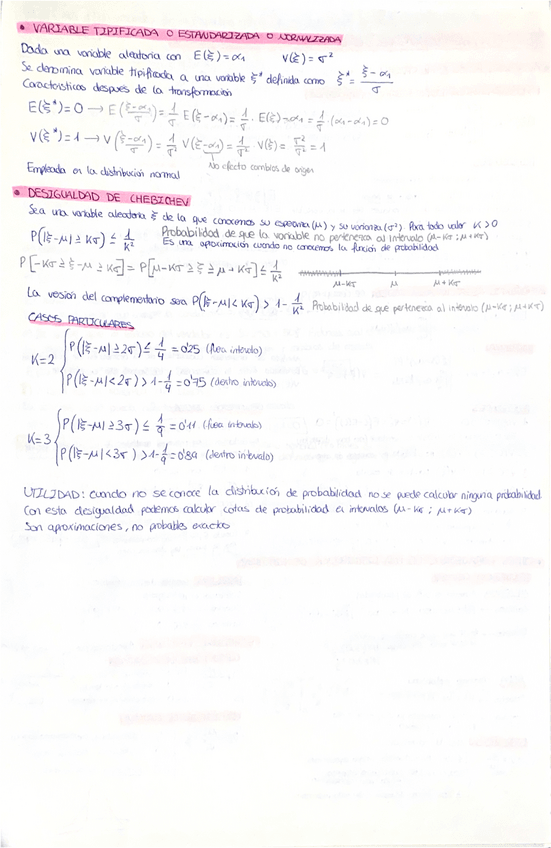 • VARIABLE TIPIFICADA O ESTANDARIZADA O NORMALIZADA
Dada una variable aleatoria con E(ξ) = α₁ V(ξ) = σ²
Se denomina variable tipificada a una variable ξ* definida como ξ* = (ξ - α₁)/σ
Características después de la transformación
E(ξ*) = 0 → E((ξ-α₁)/σ) = 1/σ E(ξ-α₁) = 1/σ · E(ξ) - α₁ = 1/σ · (α₁-α₁) = 0
V(ξ*) = 1 → V((ξ-α₁)/σ) = 1/σ² V(ξ-α₁) = 1/σ² · V(ξ) = σ²/σ² = 1
No efecto cambios de origen
Empleada en la distribución normal
• DESIGUALDAD DE CHEBICHEV
Sea una variable aleatoria ξ de la que conocemos su esperanza (μ) y su varianza (σ²). Para todo valor K > 0
P(|ξ-μ| ≥ Kσ) ≤ 1/K² Probabilidad de que la variable no pertenezca al intervalo (μ-Kσ ; μ+Kσ)
Es una aproximación cuando no conocemos la función de probabilidad
P[-Kσ ≥ ξ-μ ≥ Kσ] = P[μ-Kσ ≥ ξ ≥ μ+Kσ] ≤ 1/K²
μ-Kσ μ μ+Kσ
La versión del complementario será P(|ξ-μ| < Kσ) > 1 - 1/K² Probabilidad de que pertenezca al intervalo (μ-Kσ ; μ+Kσ)
CASOS PARTICULARES
K=2 { P(|ξ-μ| ≥ 2σ) ≤ 1/4 = 0'25 (fuera intervalo)
P(|ξ-μ| < 2σ) > 1 - 1/4 = 0'75 (dentro intervalo)
K=3 { P(|ξ-μ| ≥ 3σ) ≤ 1/9 = 0'11 (fuera intervalo)
P(|ξ-μ| < 3σ) > 1 - 1/9 = 0'89 (dentro intervalo)
UTILIDAD: cuando no se conoce la distribución de probabilidad no se puede calcular ninguna probabilidad
Con esta desigualdad podemos calcular cotas de probabilidad en intervalos (μ-Kσ ; μ+Kσ)
Son aproximaciones, no probables exactos